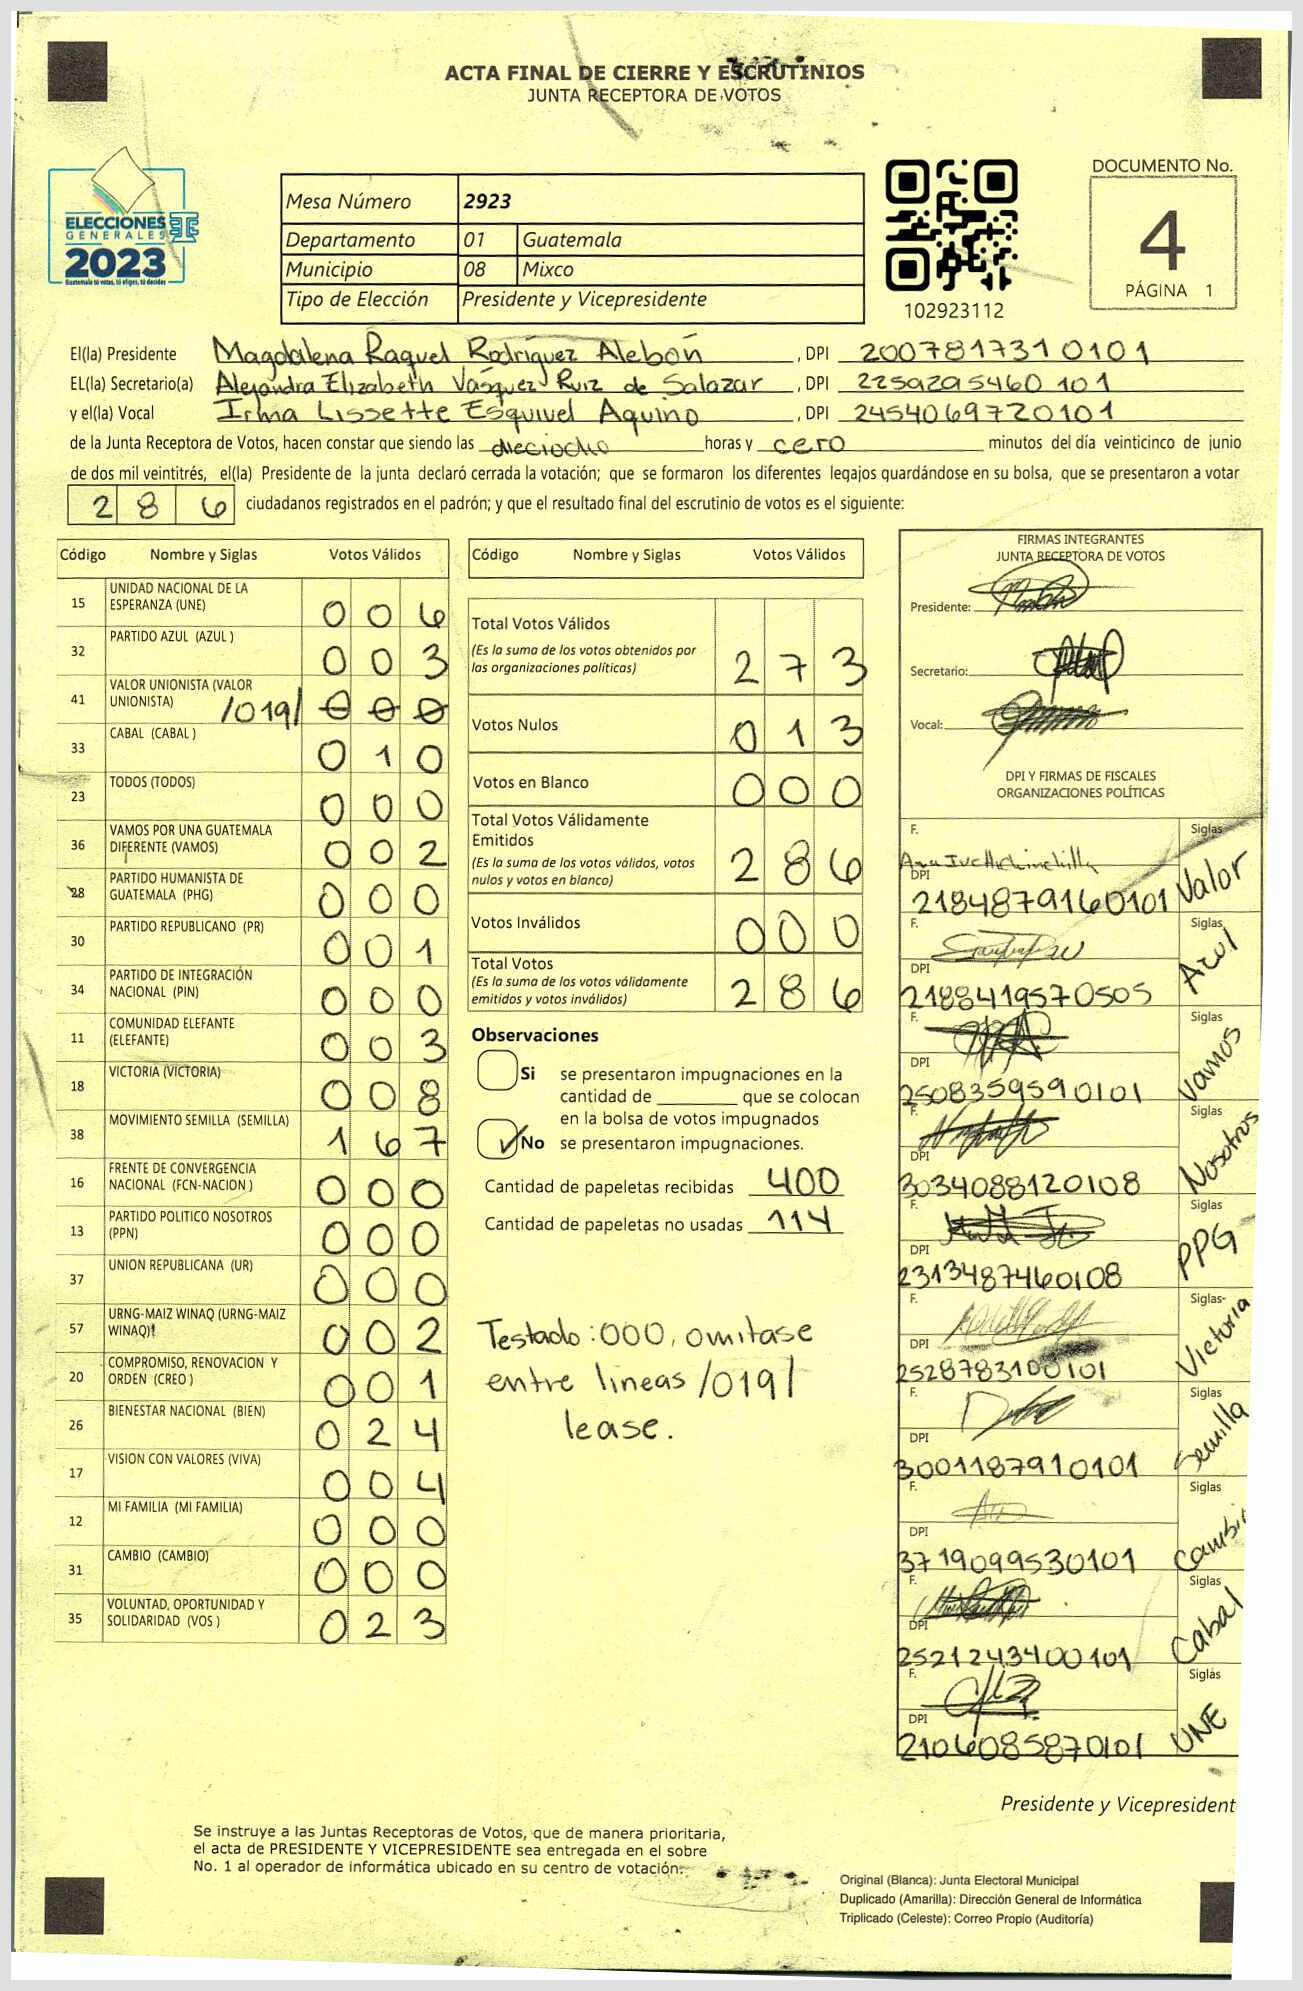 ACTA FINAL DE CIERRE Y ESCRUTINIOS
JUNTA RECEPTORA DE VOTOS
ELECCIONES
GENERALES
2023
Guatemala tú votas, tú eliges, tú decides
Mesa Número 2923
Departamento 01 Guatemala
Municipio 08 Mixco
Tipo de Elección Presidente y Vicepresidente
102923112
DOCUMENTO No.
4
PÁGINA 1
El(la) Presidente Magdalena Raquel Rodríguez Alebón, DPI 2007817310101
EL(la) Secretario(a) Alejandra Elizabeth Vásquez Ruiz de Salazar, DPI 2259295460101
y el(la) Vocal Irma Lissette Esquivel Aquino, DPI 2454069720101
de la Junta Receptora de Votos, hacen constar que siendo las dieciocho horas y cero minutos del día veinticinco de junio
de dos mil veintitrés, el(la) Presidente de la junta declaró cerrada la votación; que se formaron los diferentes legajos guardándose en su bolsa, que se presentaron a votar
286 ciudadanos registrados en el padrón; y que el resultado final del escrutinio de votos es el siguiente:
Código Nombre y Siglas Votos Válidos
15 UNIDAD NACIONAL DE LA ESPERANZA (UNE) 0 0 6
32 PARTIDO AZUL (AZUL ) 0 0 3
41 VALOR UNIONISTA (VALOR UNIONISTA) /019/ 0 0 0
33 CABAL (CABAL ) 0 1 0
23 TODOS (TODOS) 0 0 0
36 VAMOS POR UNA GUATEMALA DIFERENTE (VAMOS) 0 0 2
28 PARTIDO HUMANISTA DE GUATEMALA (PHG) 0 0 0
30 PARTIDO REPUBLICANO (PR) 0 0 1
34 PARTIDO DE INTEGRACIÓN NACIONAL (PIN) 0 0 0
11 COMUNIDAD ELEFANTE (ELEFANTE) 0 0 3
18 VICTORIA (VICTORIA) 0 0 8
38 MOVIMIENTO SEMILLA (SEMILLA) 1 6 7
16 FRENTE DE CONVERGENCIA NACIONAL (FCN-NACION ) 0 0 0
13 PARTIDO POLITICO NOSOTROS (PPN) 0 0 0
37 UNION REPUBLICANA (UR) 0 0 0
57 URNG-MAIZ WINAQ (URNG-MAIZ WINAQ) 0 0 2
20 COMPROMISO, RENOVACION Y ORDEN (CREO ) 0 0 1
26 BIENESTAR NACIONAL (BIEN) 0 2 4
17 VISION CON VALORES (VIVA) 0 0 4
12 MI FAMILIA (MI FAMILIA) 0 0 0
31 CAMBIO (CAMBIO) 0 0 0
35 VOLUNTAD, OPORTUNIDAD Y SOLIDARIDAD (VOS ) 0 2 3
Código Nombre y Siglas Votos Válidos
Total Votos Válidos
(Es la suma de los votos obtenidos por las organizaciones políticas) 2 7 3
Votos Nulos 0 1 3
Votos en Blanco 0 0 0
Total Votos Válidamente Emitidos
(Es la suma de los votos válidos, votos nulos y votos en blanco) 2 8 6
Votos Inválidos 0 0 0
Total Votos
(Es la suma de los votos válidamente emitidos y votos inválidos) 2 8 6
Observaciones
Si se presentaron impugnaciones en la
cantidad de ________ que se colocan
en la bolsa de votos impugnados
No se presentaron impugnaciones.
Cantidad de papeletas recibidas 400
Cantidad de papeletas no usadas 114
Testado: 000, omitase
entre lineas /019/
lease.
FIRMAS INTEGRANTES
JUNTA RECEPTORA DE VOTOS
Presidente:
Secretario:
Vocal:
DPI Y FIRMAS DE FISCALES
ORGANIZACIONES POLÍTICAS
F. Siglas
DPI 2184879160101 Valor
F. Siglas
DPI 2188419570505 Azul
F. Siglas
DPI 2508359590101 Vamos
F. Siglas
DPI 3034088120108 Nosotros
F. Siglas
DPI 2313487460108 PPG
F. Siglas
DPI 2528783100101 Victoria
F. Siglas
DPI 3001187910101 Semilla
F. Siglas
DPI 3719099530101
F. Siglas
DPI 2521243400101 Cabal
F. Siglas
DPI 2106085870101 UNE
Presidente y Vicepresident
Se instruye a las Juntas Receptoras de Votos, que de manera prioritaria,
el acta de PRESIDENTE Y VICEPRESIDENTE sea entregada en el sobre
No. 1 al operador de informática ubicado en su centro de votación.
Original (Blanca): Junta Electoral Municipal
Duplicado (Amarilla): Dirección General de Informática
Triplicado (Celeste): Correo Propio (Auditoría)